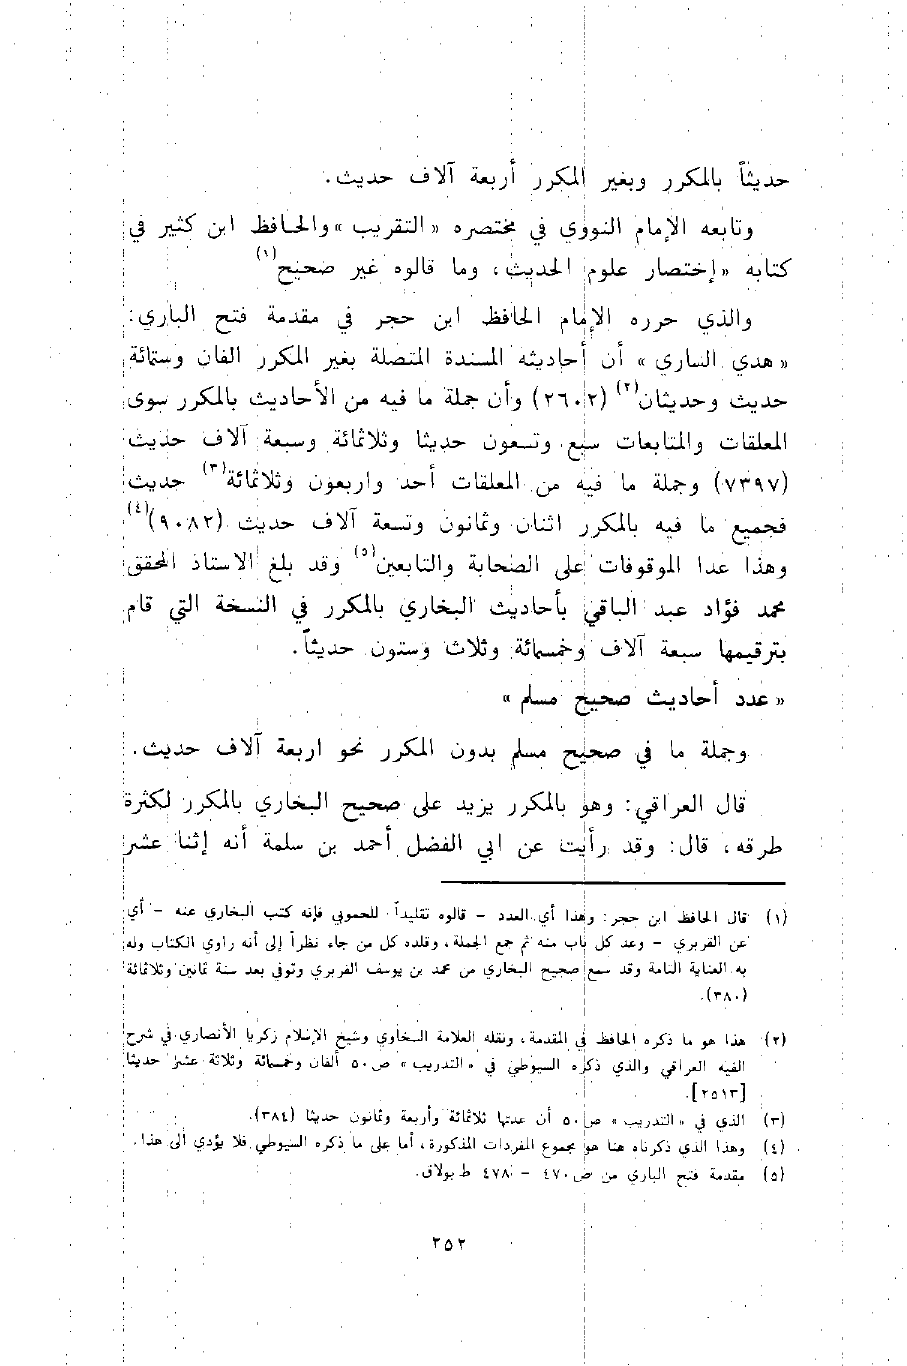 حديثاً بالمكرر وبغير المكرر أربعة آلاف حديث.
وتابعه الإمام النووي في مختصره « التقريب » والحافظ ابن كثير في
كتابه « إختصار علوم الحديث، وما قالوه غير صحيح(١)
والذي حرره الإمام الحافظ ابن حجر في مقدمة فتح الباري:
« هدي الساري » أن أحاديثه المسندة المتصلة بغير المكرر الفان وستمائة
حديث وحديثان(٢) (٢٦٠٢) وأن جملة ما فيه من الأحاديث بالمكرر سوى
المعلقات والمتابعات سبع وتسعون حديثا وثلاثمائة وسبعة آلاف حديث
(٧٣٩٧) وجملة ما فيه من المعلقات أحد واربعون وثلاثمائة(٣) حديث
فجميع ما فيه بالمكرر اثنان وثمانون وتسعة آلاف حديث (٩٠٨٢)(٤)
وهذا عدا الموقوفات على الصحابة والتابعين(٥) وقد بلغ الاستاذ المحقق
محمد فؤاد عبد الباقي بأحاديث البخاري بالمكرر في النسخة التي قام
بترقيمها سبعة آلاف وخمسمائة وثلاث وستون حديثاً.
« عدد أحاديث صحيح مسلم »
وجملة ما في صحيح مسلم بدون المكرر نحو اربعة آلاف حديث.
قال العراقي: وهو بالمكرر يزيد على صحيح البخاري بالمكرر لكثرة
طرقه، قال: وقد رأيت عن ابي الفضل أحمد بن سلمة أنه إثنا عشر
(١) قال الحافظ ابن حجر: وهذا أي العدد - قالوه تقليداً للحموبي فإنه كتب البخاري عنه - أي
عن الفربري - وعد كل باب منه ثم جمع الجملة، وقلده كل من جاء نظراً إلى أنه راوي الكتاب وله
به العناية التامة وقد سمع صحيح البخاري من محمد بن يوسف الفربري وتوفي بعد سنة ثمانين وثلاثمائة
(٣٨٠).
(٢) هذا هو ما ذكره الحافظ في المقدمة، ونقله العلامة السخاوي وشيخ الإسلام زكريا الأنصاري في شرح
الفيه العراقي والذي ذكره السيوطي في « التدريب » ص ٥٠ ألفان وخمسمائة وثلاثة عشر حديثا
[٢٥١٣].
(٣) الذي في « التدريب » ص ٥٠ أن عدتها ثلاثمائة وأربعة وثمانون حديثا (٣٨٤).
(٤) وهذا الذي ذكرناه هنا هو مجموع المفردات المذكورة، أما على ما ذكره السيوطي فلا يؤدي الى هذا.
(٥) مقدمة فتح الباري من ص ٤٧٠ - ٤٧٨ ط بولاق.
٢٥٢